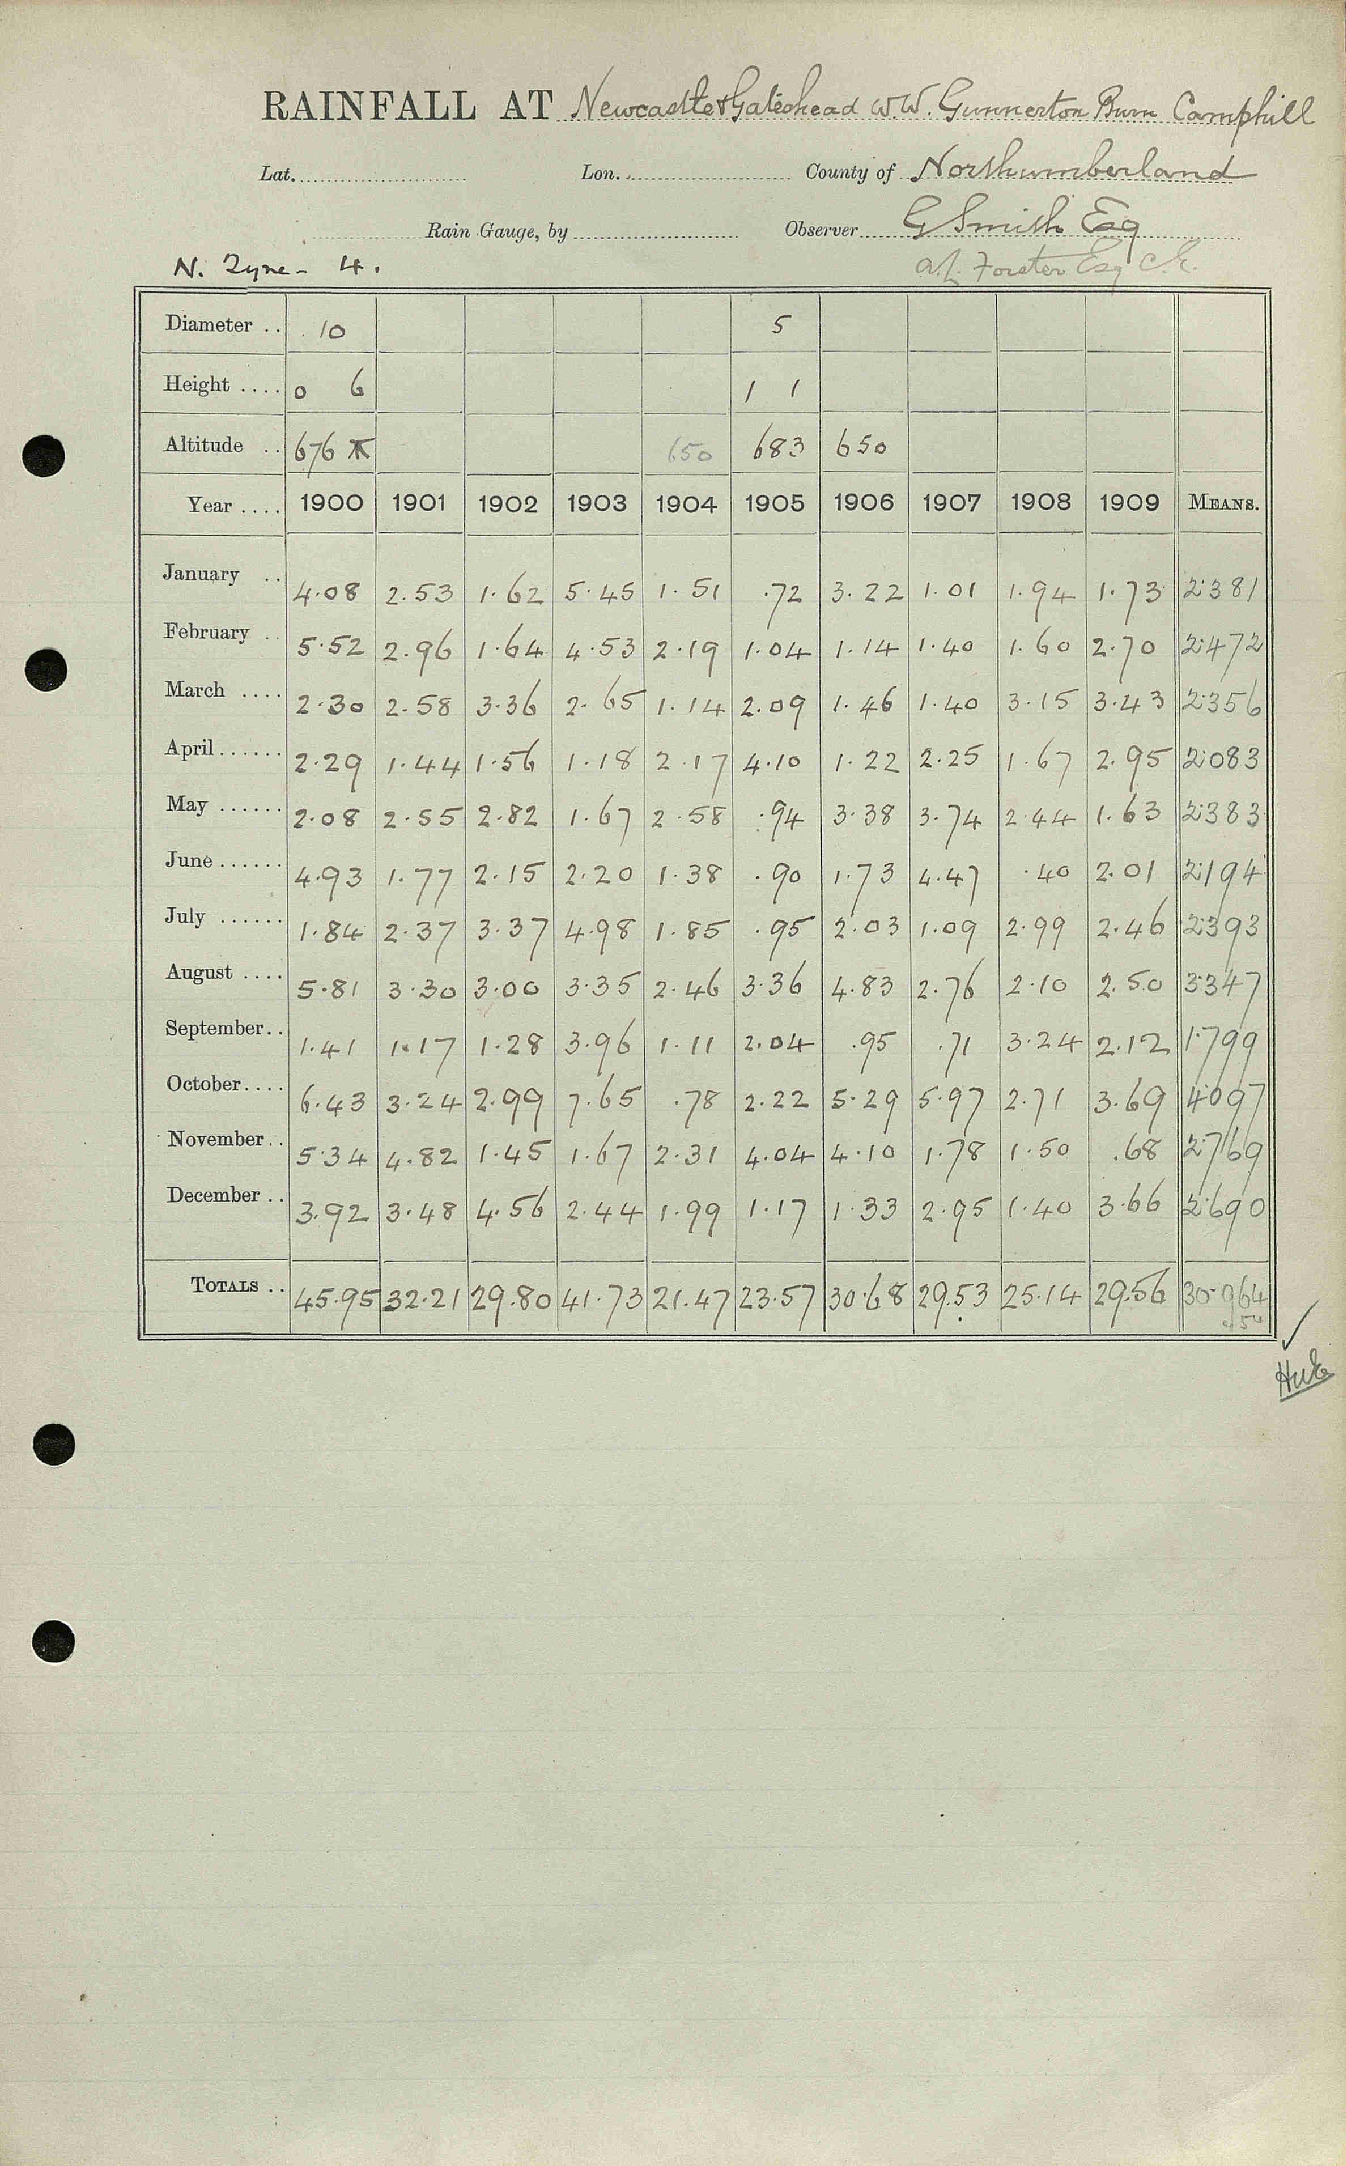 RAINFALL AT Newcastle & Gateshead W.W. Gunnerton Burn Camphill
Lat. Lon. County of Northumberland
Rain Gauge, by Observer G Smith Esq
N. Tyne - 4. A.L. Forster Esq C.E.
Diameter .. 10 5
Height .... 0 6 1 1
Altitude .. 676 650 683 650
Year .... 1900 1901 1902 1903 1904 1905 1906 1907 1908 1909 MEANS.
January .. 4.08 2.53 1.62 5.45 1.51 .72 3.22 1.01 1.94 1.73 2.381
February .. 5.52 2.96 1.64 4.53 2.19 1.04 1.14 1.40 1.60 2.70 2.472
March .... 2.30 2.58 3.36 2.65 1.14 2.09 1.46 1.40 3.15 3.43 2.356
April...... 2.29 1.44 1.56 1.18 2.17 4.10 1.22 2.25 1.67 2.95 2.083
May ...... 2.08 2.55 2.82 1.67 2.58 .94 3.38 3.74 2.44 1.63 2.383
June ...... 4.93 1.77 2.15 2.20 1.38 .90 1.73 4.47 .40 2.01 2.194
July ...... 1.84 2.37 3.37 4.98 1.85 .95 2.03 1.09 2.99 2.46 2.393
August .... 5.81 3.30 3.00 3.35 2.46 3.36 4.83 2.76 2.10 2.50 3.347
September.. 1.41 1.17 1.28 3.96 1.11 2.04 .95 .71 3.24 2.12 1.799
October.... 6.43 3.24 2.99 7.65 .78 2.22 5.29 5.97 2.71 3.69 4.097
November.. 5.34 4.82 1.45 1.67 2.31 4.04 4.10 1.78 1.50 .68 2.769
December .. 3.92 3.48 4.56 2.44 1.99 1.17 1.33 2.95 1.40 3.66 2.690
TOTALS .. 45.95 32.21 29.80 41.73 21.47 23.57 30.68 29.53 25.14 29.56 30.964